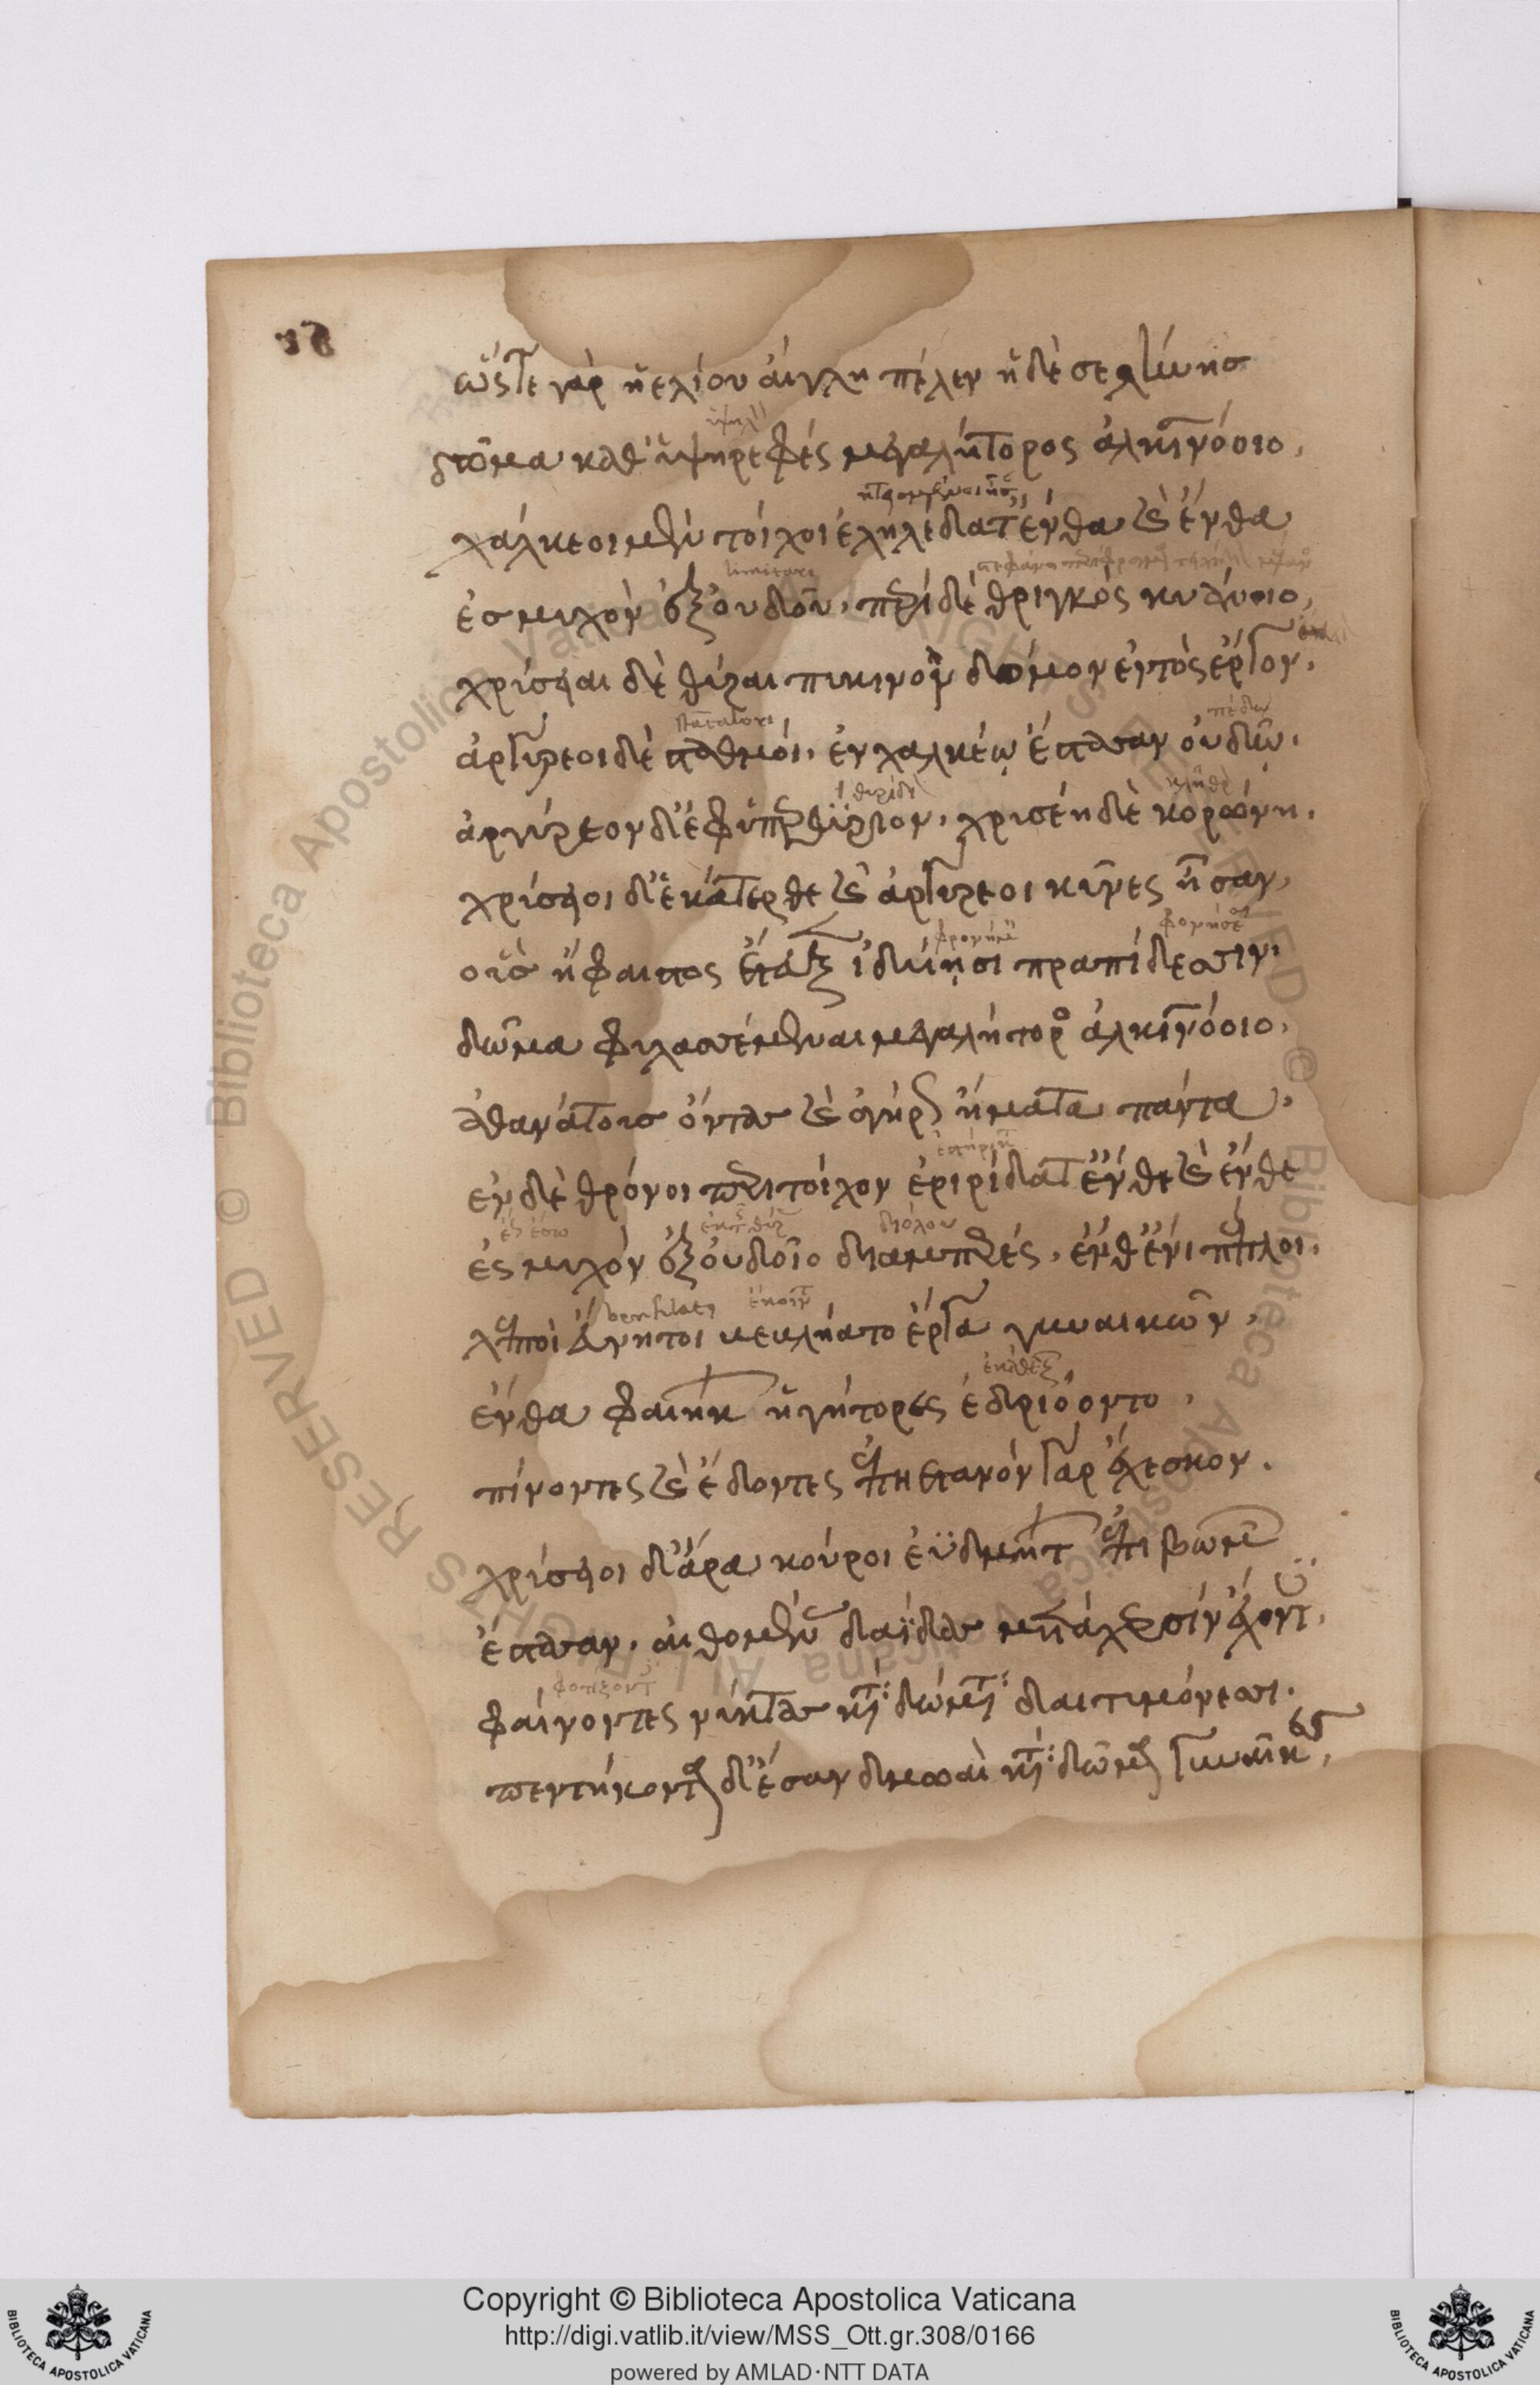 ὥστε γὰρ ἠελίου αἴγλη πέλεν ἠδὲ σελήνης
δῶμα καθ' ὑψηρεφές μεγαλήτορος ἀλκινόοιο,
χάλκεοι μὲν τοίχοι ἐληλέδατ' ἔνθα καὶ ἔνθα
limitari
ἐς μυχὸν ἐξ ουδοῦ, περὶ δὲ θριγκὸς κυάνοιο,
χρύσειαι δὲ θύραι πυκινὸν δόμον ἐντὸς ἔργον.
ἀργύρεοι δὲ σταθμοὶ, ἐν χαλκέῳ ἔστασαν οὐδῷ.
θυρίδι
ἀργύρεον δ' ἐφ' ὑπερθύριον, χρυσέη δὲ κορώνη.
χρύσειοι δ' ἑκάτερθε καὶ ἀργύρεοι κύνες ἦσαν,
οὓς ἥφαιστος ἔτευξεν ἰδυίῃσι πραπίδεσσιν.
δῶμα φυλασσέμεναι μεγαλήτορος ἀλκινόοιο.
ἀθανάτους ὄντας καὶ ἀγήρως ἤματα πάντα.
ἐν δὲ θρόνοι περὶ τοίχον ἐριρίδατ' ἔνθε καὶ ἔνθε
ἔσω διόλου
ἐς μυχὸν ἐξ οὐδοῖο διαμπερές, ἔνθ' ἔνι πέπλοι.
λεπτοὶ ἔννητοι κεκλήατο ἔργα γυναικῶν,
ἔνθα φαιήκων ἡγήτορες ἑδριόοντο,
πίνοντες καὶ ἔδοντες ἐπηετανὸν γὰρ ἔχεσκον.
χρύσειοι δ' ἄρα κούροι ἐϋδμήτων ἐπὶ βωμῶν
ἔστασαν, αἰθομένας δαΐδας μετὰ χερσὶν ἔχοντες,
φαίνοντες νύκτας κατὰ δώματα δαιτυμόνεσσι.
πεντήκοντα δ' ἔσαν δμωαὶ κατὰ δῶμα γυναῖκες,
BIBLIOTECA APOSTOLICA VATICANA
Copyright © Biblioteca Apostolica Vaticana
http://digi.vatlib.it/view/MSS_Ott.gr.308/0166
powered by AMLAD·NTT DATA
BIBLIOTECA APOSTOLICA VATICANA